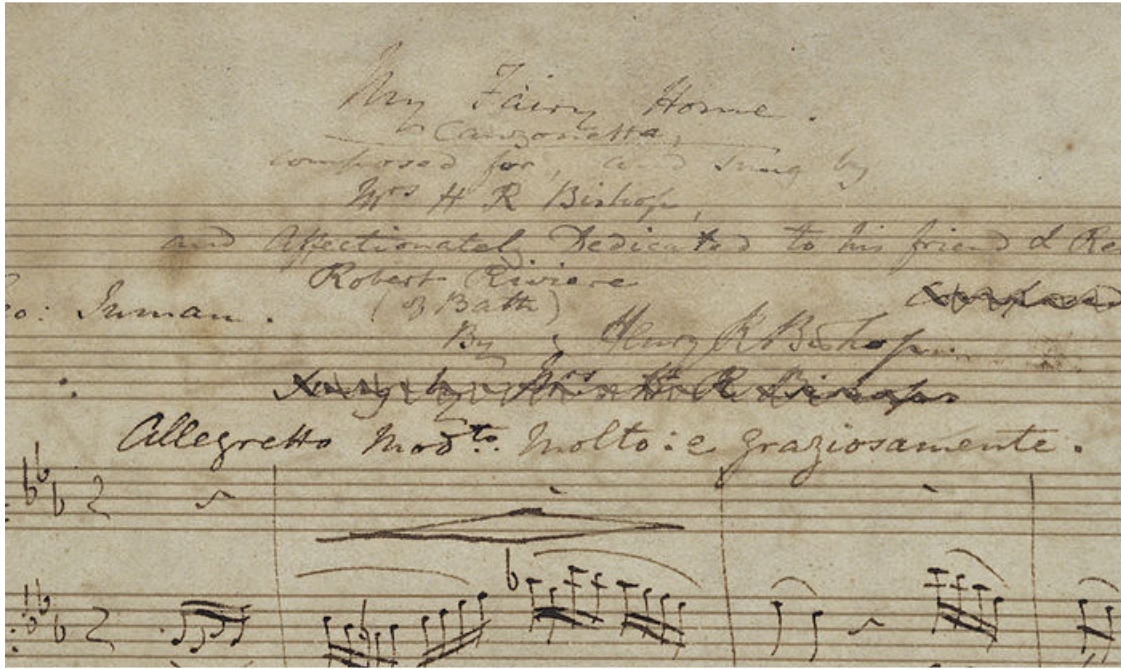 My Fairy Home.
Canzonetta,
composed for, and sung by
Mrs H R Bishop,
and affectionately Dedicated to his friend
Robert Riviere
(of Bath)
Inman.
By Henry R Bishop
Sung by Mrs H R Bishop
Allegretto Modto. Molto: e graziosamente.